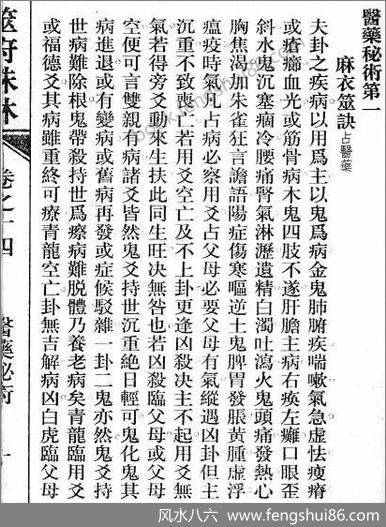 醫藥秘術第一
麻衣筮訣占醫藥
夫卦之疾病以用爲主以鬼爲病金鬼肺腑疾喘嗽氣急虛怯瘦瘠
或瘡癤血光或筋骨病木鬼四肢不遂肝膽主病右瘓左癱口眼歪
斜水鬼沉塞痼冷腰痛腎氣淋瀝遺精白濁吐瀉火鬼頭痛發熱心
胸焦渴加朱雀狂言譫語陽症傷寒嘔逆土鬼脾胃發脹黃腫虛浮
瘟疫時氣凡占病必察用爻占父母必要父母有氣縱遇凶卦但主
沉重不致喪亡若用爻空亡及不上卦更逢凶殺決主不起用爻無
氣若得旁爻動來生扶此同生旺決無咎也若凶殺臨父母或父母
空便可言雙親有病諸爻皆然鬼爻持世沉重絕日輕可鬼化鬼其
病進退或有變病或舊病再發或症候駁雜一卦二鬼亦然鬼爻持
世病難除根鬼帶殺持世爲瘵病難脫體乃養老病矣青龍臨用爻
或福德爻其病雖重終可療青龍空亡卦無吉解病凶白虎臨父母
筮府珠林
卷之十四
醫藥秘術
十
風水八六 www.fengshui86.com